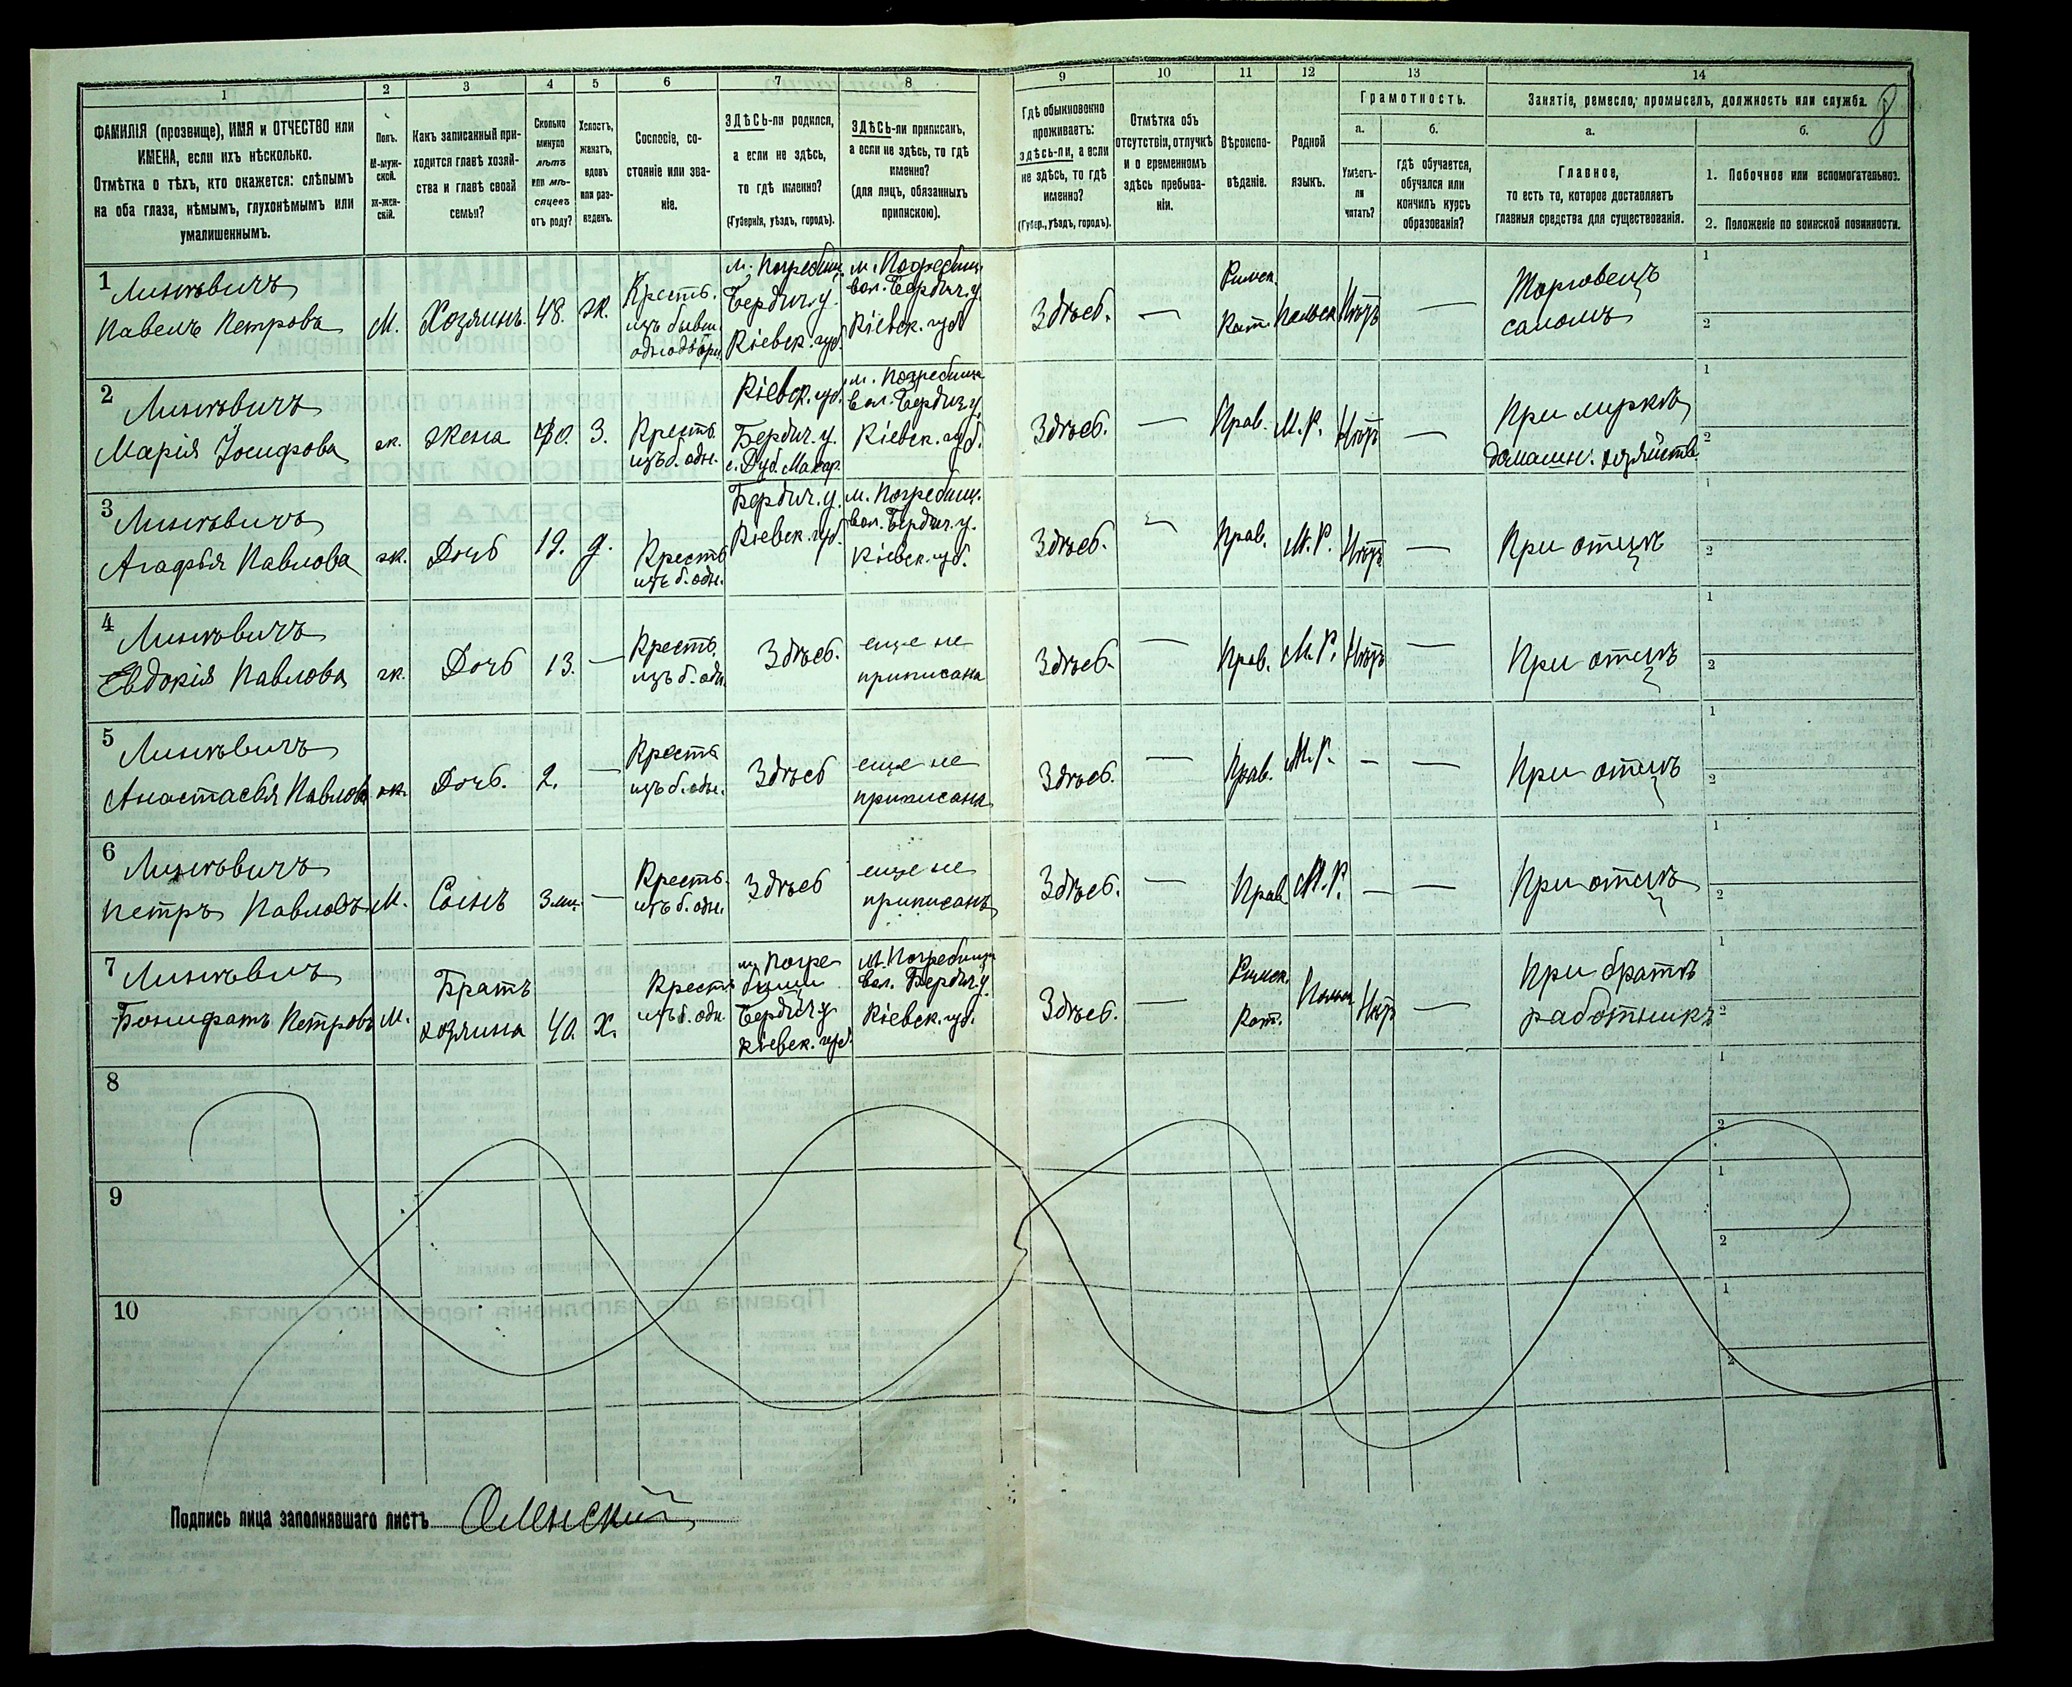 1 2 3 4 5 6 7 8 9 10 11 12 13 14
8
ФАМИЛІЯ (прозвище), ИМЯ и ОТЧЕСТВО или
ИМЕНА, если ихъ нѣсколько.
Отмѣтка о тѣхъ, кто окажется: слѣпымъ
на оба глаза, нѣмымъ, глухонѣмымъ или
умалишеннымъ.
Полъ.
М-муж-
ской.
ж-жен-
скій.
Какъ записанный при-
ходится главѣ хозяй-
ства и главѣ своей
семьи?
Сколько
минуло
лѣтъ
или мѣ-
сяцевъ
отъ роду?
Холостъ,
женатъ,
вдовъ
или раз-
веденъ.
Сословіе, со-
стояніе или зва-
ніе.
ЗДѢСЬ-ли родился,
а если не здѣсь,
то гдѣ именно?
(Губернія, уѣздъ, городъ).
ЗДѢСЬ-ли приписанъ,
а если не здѣсь, то гдѣ
именно?
(для лицъ, обязанныхъ
припискою).
Гдѣ обыкновенно
проживаетъ:
здѣсь-ли, а если
не здѣсь, то гдѣ
именно?
(Губер., уѣздъ, городъ).
Отмѣтка объ
отсутствіи, отлучкѣ
и о временномъ
здѣсь пребыва-
ніи.
Вѣроиспо-
вѣданіе.
Родной
языкъ.
Грамотность.
а.
Умѣетъ-
ли
читать?
б.
гдѣ обучается,
обучался или
кончилъ курсъ
образованія?
Занятіе, ремесло, промыселъ, должность или служба.
а.
Главное,
то есть то, которое доставляетъ
главныя средства для существованія.
б.
1. Побочное или вспомогательное.
2. Положеніе по воинской повинности.
1
Павелъ Петровъ
М.
Хозяинъ.
48.
ж.
Крестъ.
изъ бывш.
однодворц.
м. Погребищ.
Бердич. у.
Кіевск. губ.
м. Погребищ.
вол. Бердич. у.
Кіевск. губ.
Здѣсь.
—
Римск.
Кат.
Польск.
Нѣтъ
—
Торговецъ
саломъ
1
2
2
Марія Іосифова
ж.
жена
40.
З.
Крестъ.
изъ б. одн.
Кіевск. губ.
Бердич. у.
с. Дуб. Махар.
м. Погребищ.
вол. Бердич. у.
Кіевск. губ.
Здѣсь.
—
Прав.
М. Р.
Нѣтъ
—
При мужѣ
домашн. хозяйств.
1
2
3
Агафья Павлова
ж.
Дочь
19.
д.
Крестъ
изъ б. одн.
Бердич. у.
Кіевск. губ.
м. Погребищ.
вол. Бердич. у.
Кіевск. губ.
Здѣсь.
—
Прав.
М. Р.
Нѣтъ
—
При отцѣ
1
2
4
Евдокія Павлова
ж.
Дочь
13.
—
Крестъ.
изъ б. одн.
Здѣсь.
еще не
приписана
Здѣсь.
—
Прав.
М. Р.
Нѣтъ
—
При отцѣ
1
2
5
Анастасья Павлова
ж.
Дочь.
2.
—
Крестъ
изъ б. одн.
Здѣсь
еще не
приписана
Здѣсь.
—
Прав.
М. Р.
—
—
При отцѣ
1
2
6
Петръ Павловъ
М.
Сынъ
3 мц.
—
Крестъ.
изъ б. одн.
Здѣсь
еще не
приписанъ
Здѣсь.
—
Прав.
М. Р.
—
—
При отцѣ
1
2
7
Бонифатъ Петровъ
М.
Братъ
хозяина
40.
Х.
Крестъ
изъ б. одн.
м. Погре-
бищи
Бердич. у.
Кіевск. губ.
м. Погребищ.
вол. Бердич. у.
Кіевск. губ.
Здѣсь.
—
Римск.
Кат.
Польск.
Нѣтъ
—
При братѣ
работникъ
1
2
8
1
2
9
1
2
10
1
2
Подпись лица заполнявшаго листъ